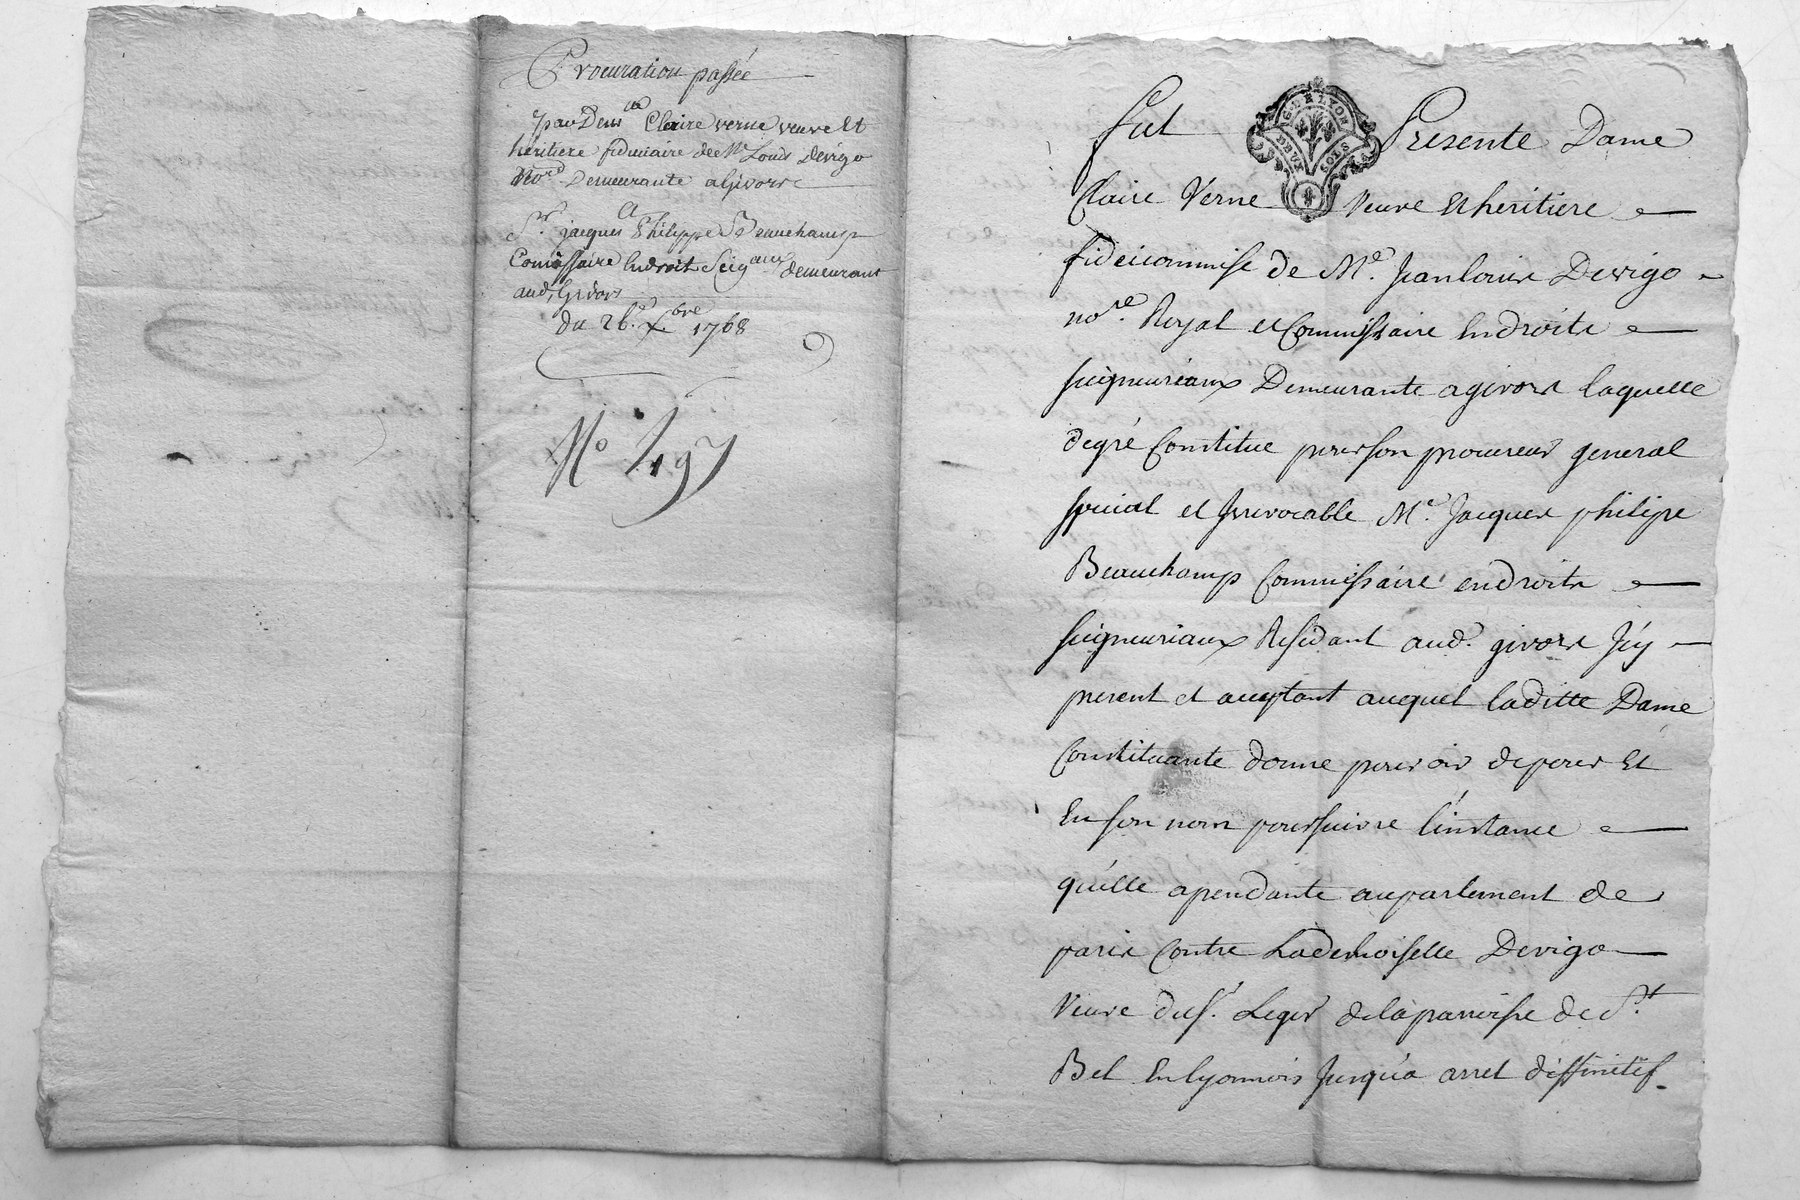 Procuration passée
par Dem^lle Claire verne veuve Et
heritiere fiduciaire de M^e Louis Devigo
No^re Demeurante a Givors
A
S^r. jacques Philippe Beauchamp
Comissaire En droit Seig^aux demeurant
aud. Givors
du 26.^e X.^bre 1768
N^o 197
G. DE LYON
DEUX SOLS
Fut Presente Dame
Claire Verne Veuve Et heritiere
fideicommise de M^e. Jean louis Devigo
no^re. Royal et Commissaire En droits
seigneuriaux Demeurante a givors laquelle
degré Constitue pour son procureur general
special et Irrevocable M^e. Jacques philipe
Beauchamp Commissaire en droits
seigneuriaux Residant aud. givors Icy
present et acceptant auquel laditte Dame
Constituante donne pouvoir de pour Et
En son nom poursuivre l'instance
qu'elle a pendante au parlement de
paris Contre La demoiselle Devigo
Veuve du S^r. Leger de la parroisse de S^t.
Bel En lyonnois Jusqu'a arret diffinitif.